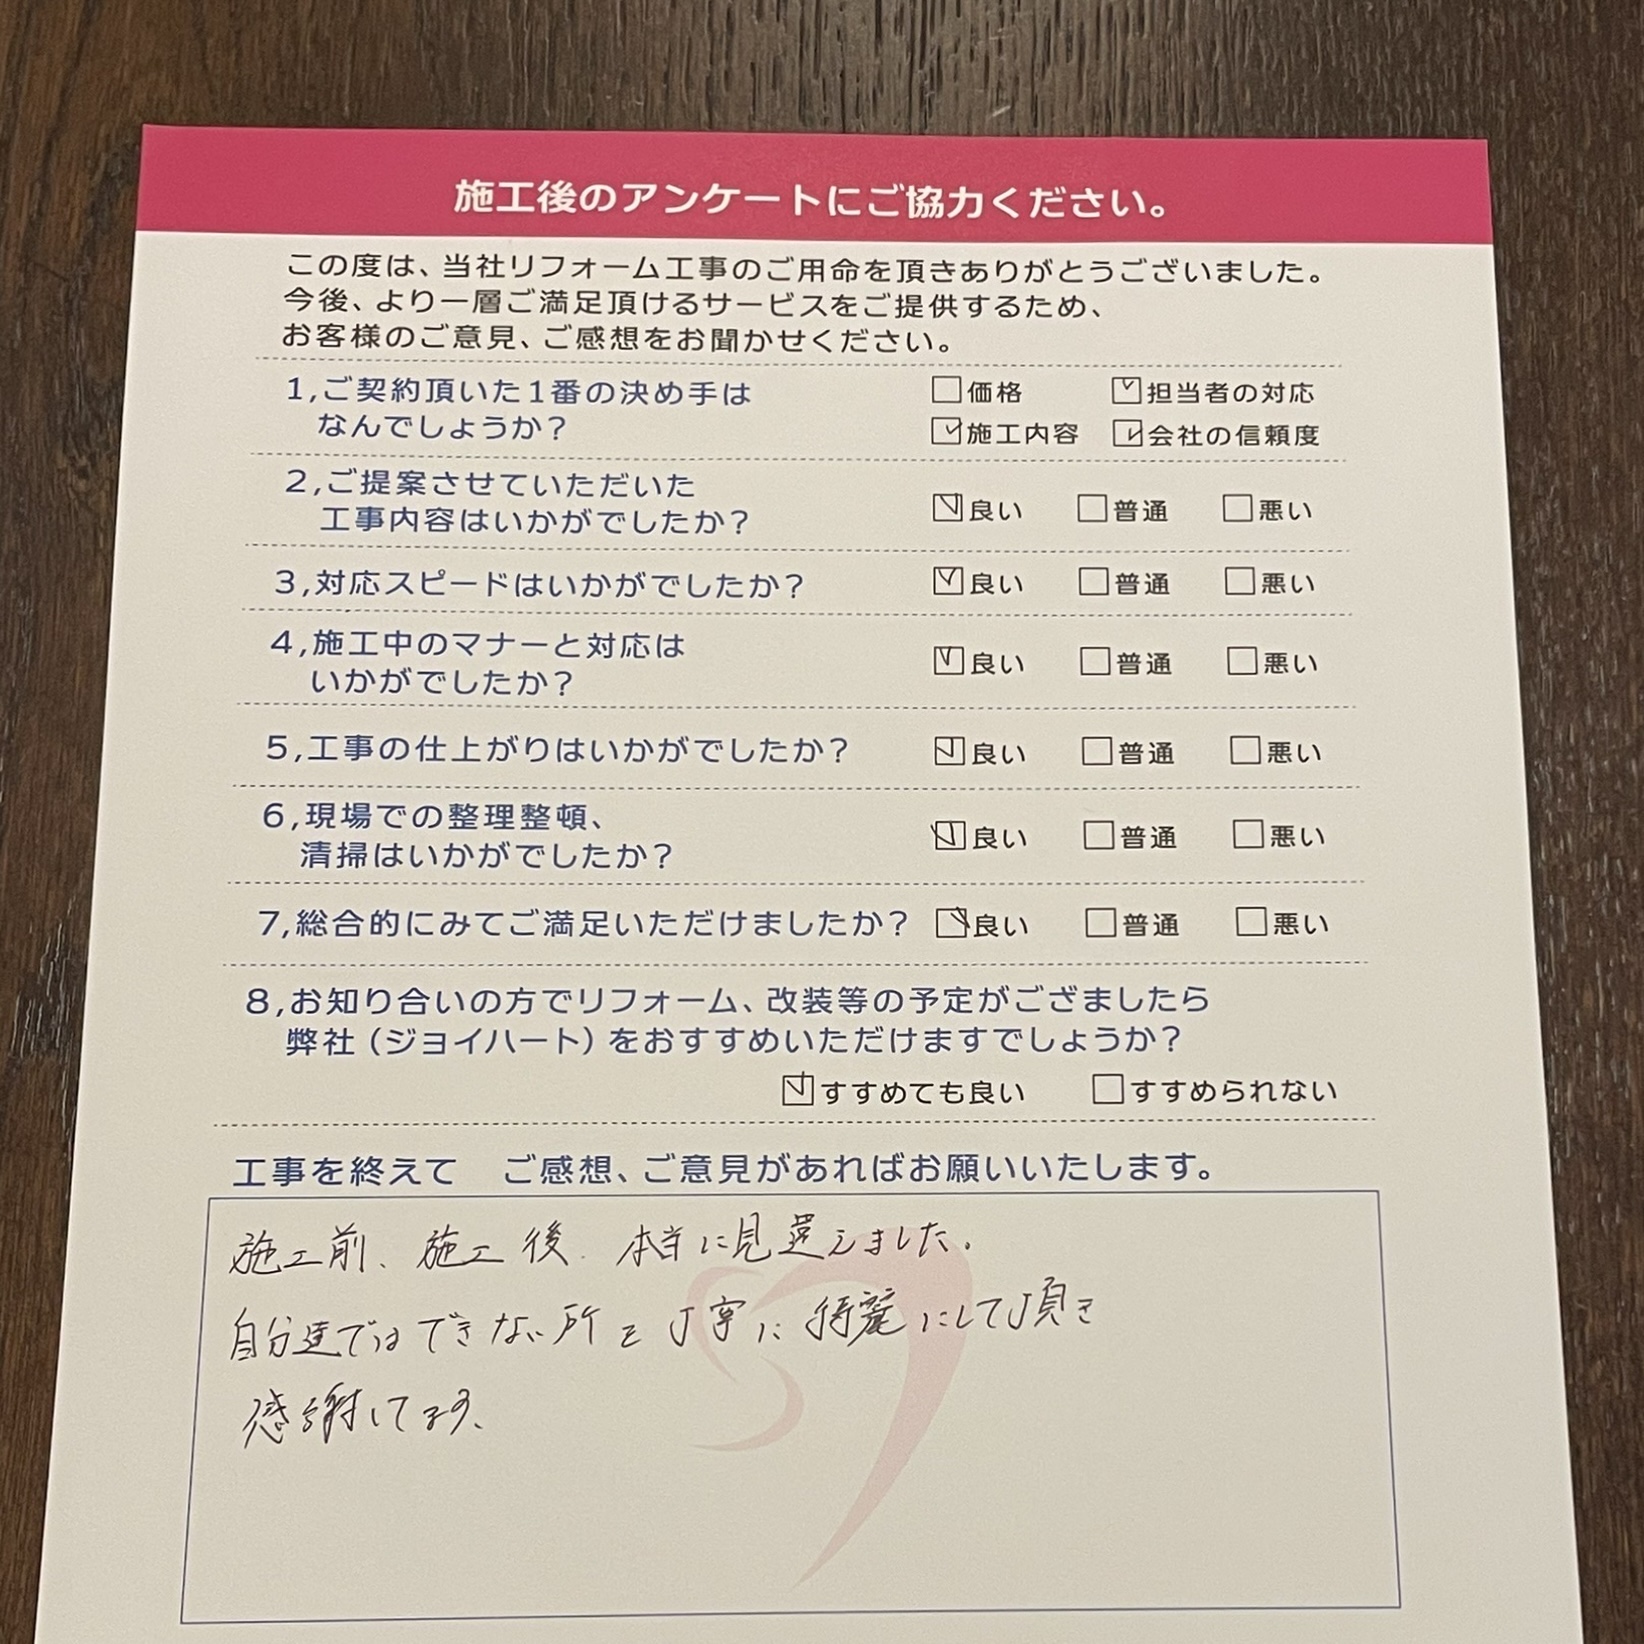 施工後のアンケートにご協力ください。
この度は、当社リフォーム工事のご用命を頂きありがとうございました。
今後、より一層ご満足頂けるサービスをご提供するため、
お客様のご意見、ご感想をお聞かせください。
1,ご契約頂いた1番の決め手は
なんでしょうか？
□価格 ☑担当者の対応
☑施工内容 ☑会社の信頼度
2,ご提案させていただいた
工事内容はいかがでしたか？
☑良い □普通 □悪い
3,対応スピードはいかがでしたか？ ☑良い □普通 □悪い
4,施工中のマナーと対応は
いかがでしたか？
☑良い □普通 □悪い
5,工事の仕上がりはいかがでしたか？ ☑良い □普通 □悪い
6,現場での整理整頓、
清掃はいかがでしたか？
☑良い □普通 □悪い
7,総合的にみてご満足いただけましたか？ ☑良い □普通 □悪い
8,お知り合いの方でリフォーム、改装等の予定がござましたら
弊社（ジョイハート）をおすすめいただけますでしょうか？
☑すすめても良い □すすめられない
工事を終えて　ご感想、ご意見があればお願いいたします。
施工前、施工後、本当に見違えました。
自分達ではできない所を丁寧に綺麗にして頂き
感謝してます、